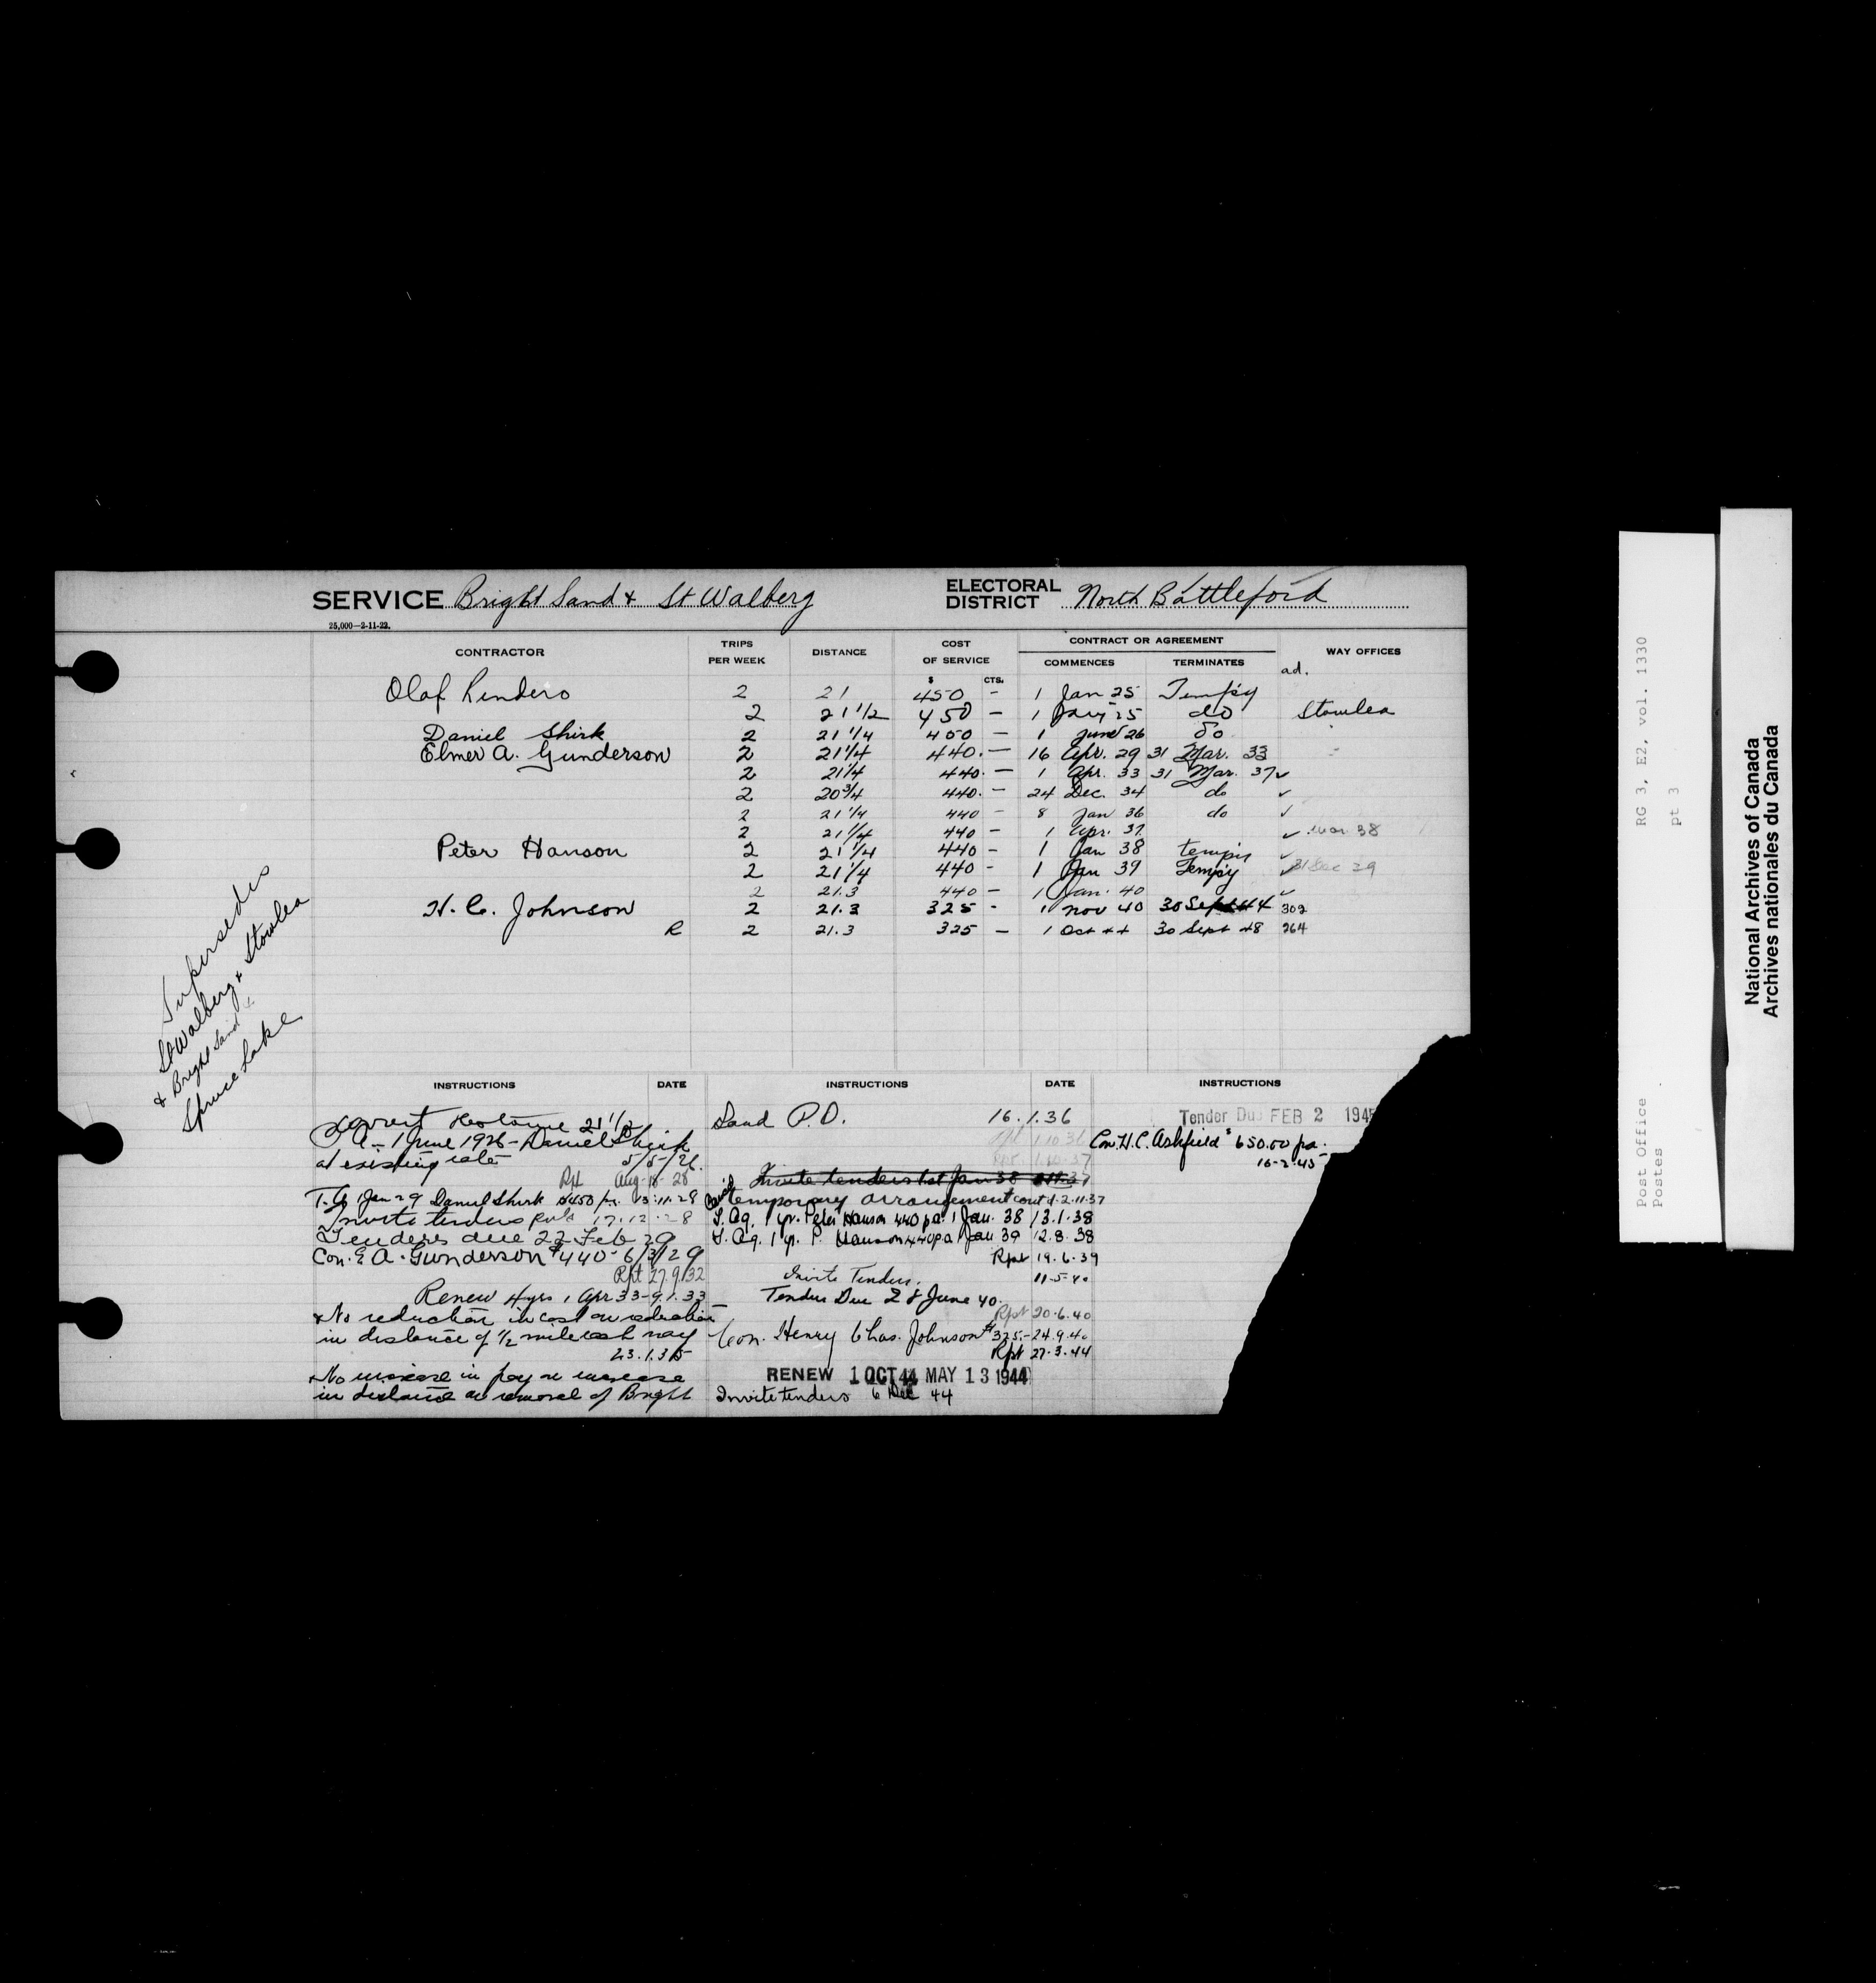 SERVICE Bright Sand & St Walberg ELECTORAL DISTRICT North Battleford
25,000—2-11-22.
CONTRACTOR TRIPS PER WEEK DISTANCE COST OF SERVICE CONTRACT OR AGREEMENT WAY OFFICES
COMMENCES TERMINATES ad.
$ CTS.
Olaf Lindero 2 21 450 - 1 Jan 25 Temp'y
2 21 1/2 450 - 1 Jany 25 do Stowlea
Daniel Shirk 2 21 1/4 450 - 1 June 26 do
Elmer A. Gunderson 2 21 1/4 440. - 16 Apr. 29 31 Mar. 33
2 21 1/4 440. - 1 Apr. 33 31 Mar. 37 ✓
2 20 3/4 440. - 24 Dec. 34 do ✓
2 21 1/4 440 - 8 Jan 36 do ✓
2 21 1/4 440 - 1 Apr. 37 ✓ Mar 38
Peter Hanson 2 21 1/4 440 - 1 Jan 38 tempy ✓
2 21 1/4 440 - 1 Jan 39 Tempy ✓ 31 Dec 39
2 21.3 440 - 1 Jan. 40 ✓
H. C. Johnson 2 21.3 325 - 1 Nov 40 30 Sept 44 302
R 2 21.3 325 - 1 Oct 44 30 Sept 48 264
Supersedes
St Walberg & Stowlea
& Bright Sand &
Spruce Lake
INSTRUCTIONS DATE INSTRUCTIONS DATE INSTRUCTIONS
distance 21 1/2
T A - 1 June 1926 - Daniel Shirk
at existing rate 5/5/26.
Rpt Aug 18 28
T. A. 1 Jan 29 Daniel Shirk $450 pa. 13.11.28
Invite tenders 17.12.28
Tenders due 22 Feb 29
Con. E. A. Gunderson $440 - 6/3/29
Rpt 27.9.32
Renew 4 yrs 1 Apr 33 - 9.1.33
No reduction in cost on reduction
in distance of 1/2 mile each way
23.1.35
No increase in pay on increase
in distance on removal of Bright
Sand P.O. 16.1.36
Rpt 1.10.36
Rpt 1.10.37
Invite tenders 1st Jan 38
temporary arrangement cont'd 2.11.37
T. Ag. 1 yr. Peter Hanson 440 pa. 1 Jan. 38 13.1.38
T. Ag. 1 yr. P. Hanson 440 pa 1 Jan 39 12.8.38
Rpt 19.6.39
Invite Tenders. 11-5-40
Tenders Due 28 June 40.
Rpt 20.6.40
Con. Henry Chas. Johnson $325.- 24.9.40
Rpt 27.3.44
RENEW 1 OCT 44 MAY 13 1944
Invite tenders 6 Dec 44
Tender Due FEB 2 1945
Con. H. C. Ashfield $650.00 pa.
16-2-45
Post Office RG 3, E2, vol. 1330
Postes pt 3
National Archives of Canada
Archives nationales du Canada